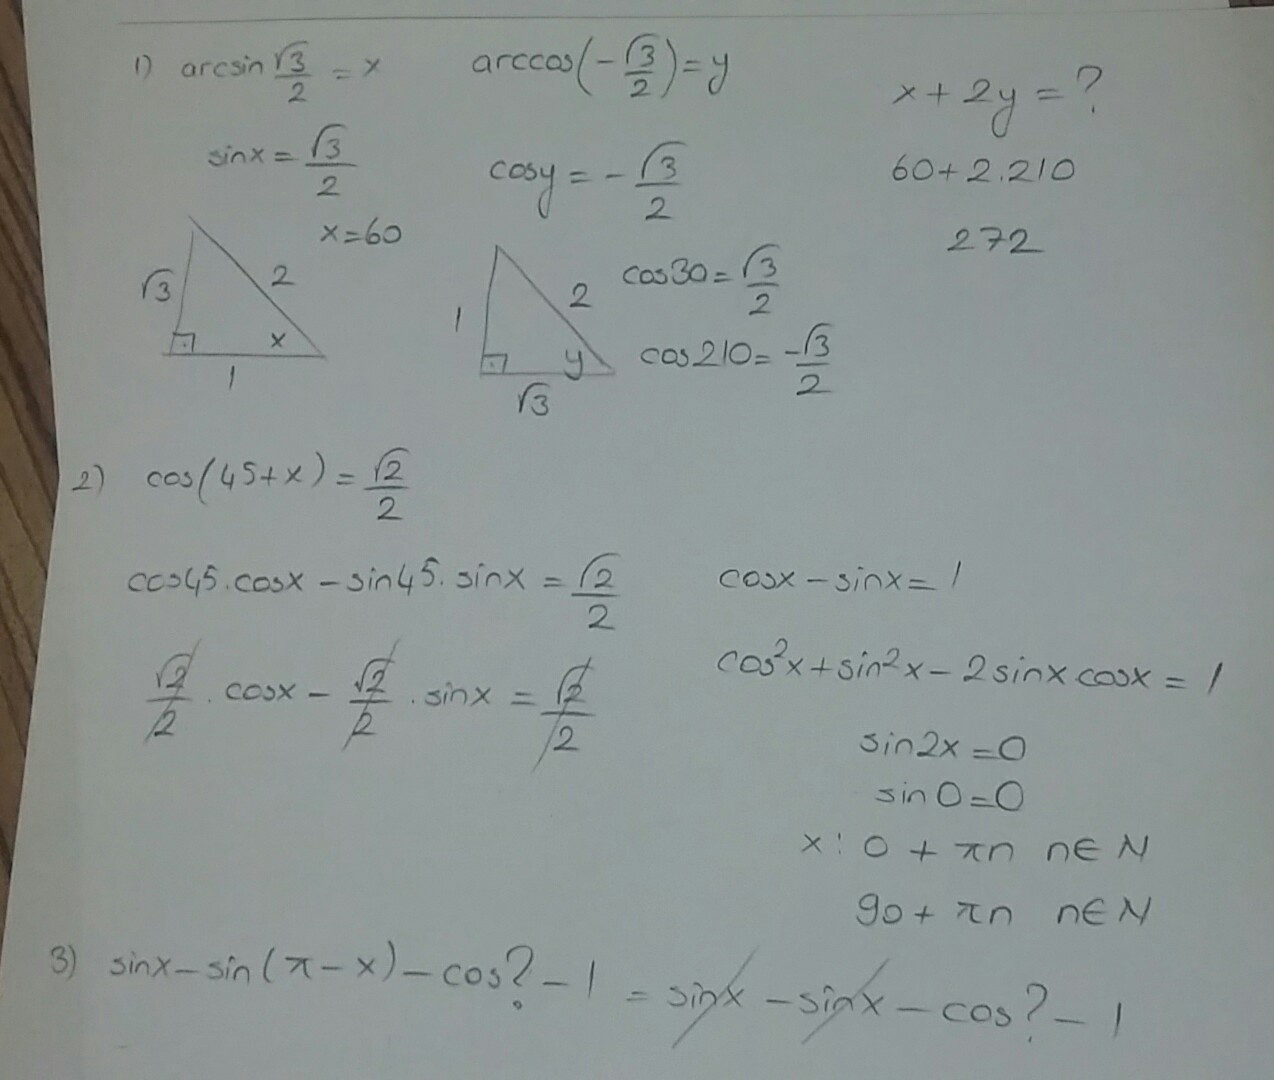 1) arcsin √3/2 = x
arccos(-√3/2) = y
x + 2y = ?
sinx = √3/2
cosy = -√3/2
60+2.210
x=60
272
√3 2 x 1
1 2 y √3
cos30 = √3/2
cos210 = -√3/2
2) cos(45+x) = √2/2
cos45.cosx - sin45.sinx = √2/2
√2/2 . cosx - √2/2 . sinx = √2/2
cosx - sinx = 1
cos²x + sin²x - 2sinxcosx = 1
sin2x = 0
sin0 = 0
x: 0 + πn n∈N
90 + πn n∈N
3) sinx - sin(π-x) - cos? - 1 = sinx - sinx - cos? - 1